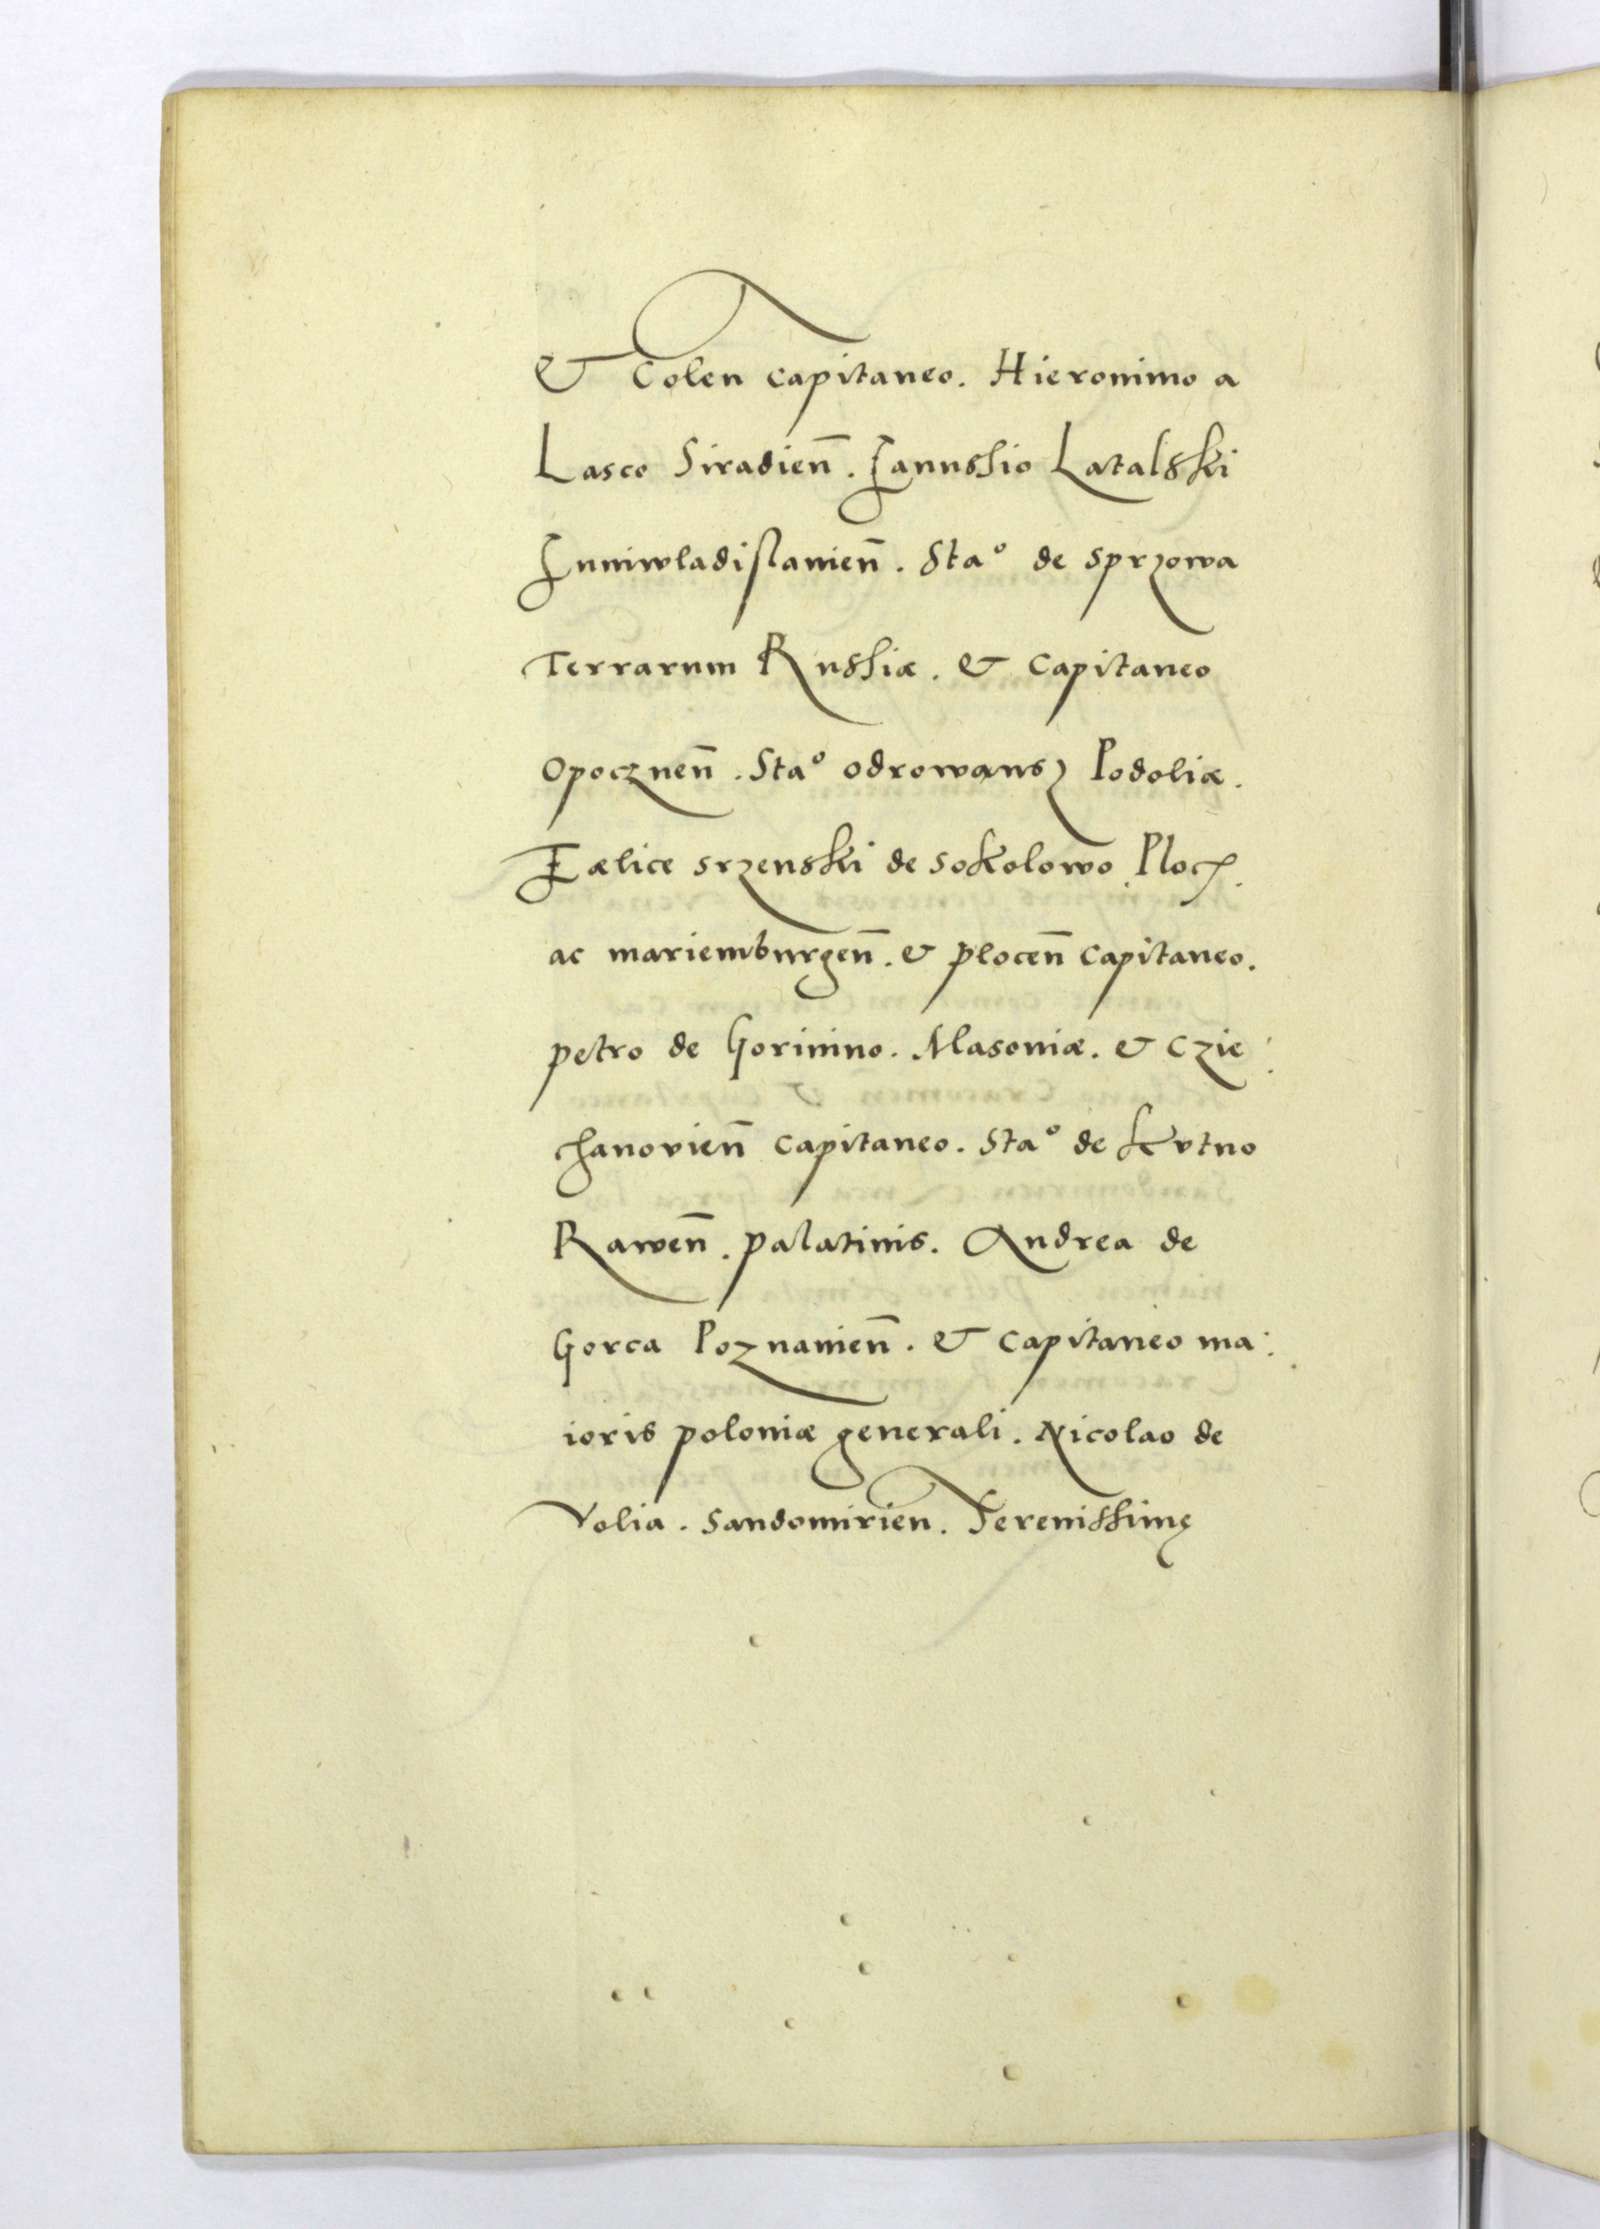 & Colen capitaneo. Hieronimo a
Lasco Siradien̄. Ianusſio Latalski
Iuniwladiſlauien̄. Staº de sprzowa
Terrarum Rusſiæ. & capitaneo
opocznen̄. Staº odrowansz Podoliæ.
Fælice srzenski de sokolowo Plocz.
ac mariemburgen̄. & plocen̄ capitaneo.
petro de Gorinino. Masouiæ. & Czie:
chanovien̄ capitaneo. Staº de Kvtno
Rawen̄. palatinis. Andrea de
Gorca Poznanien̄. & capitaneo ma:
ioris poloniæ generali. Nicolao de
Volia. Sandomirien. Serenisſimę